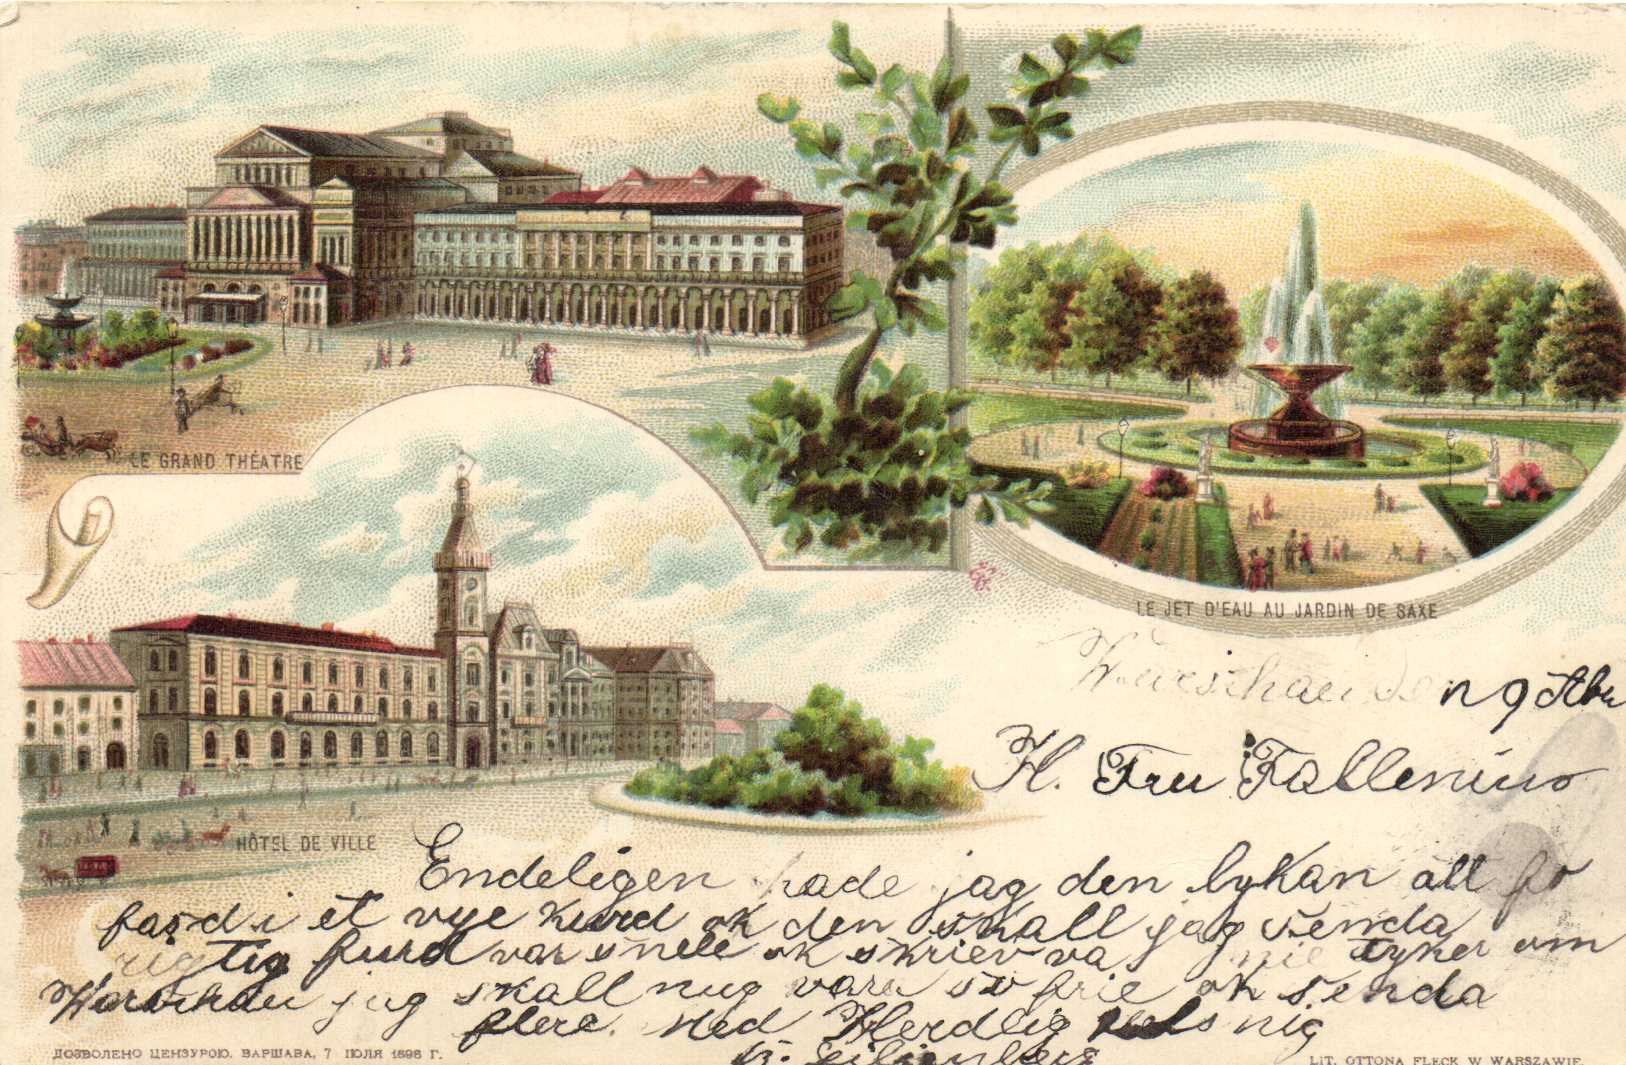 LE GRAND THÉATRE
LE JET D'EAU AU JARDIN DE SAXE
HÔTEL DE VILLE
Warschau den 9 Akbr
H. Fru Fallenius
Endeligen hade jag den lykan att fo
i et vye kurd ok den skall jag senda
rigtig furd var snell ok skriev va ni tyker om
Warschau jag skall nug vara so frie ok senda
flere. Med Herdlig helsnig
ДОЗВОЛЕНО ЦЕНЗУРОЮ. ВАРШАВА, 7 ІЮЛЯ 1898 Г.
LIT. OTTONA FLECK W WARSZAWIE.